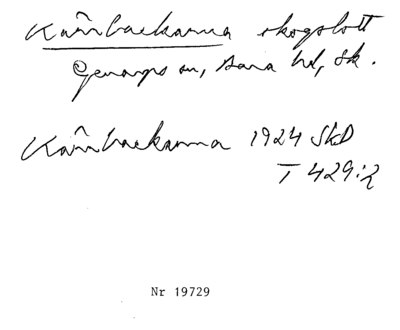 Kåmbackarna skogslott
Genarps sn, Bara hd, Sk.
Kåmbackarna 1924 SkD
T 429:2
Nr 19729